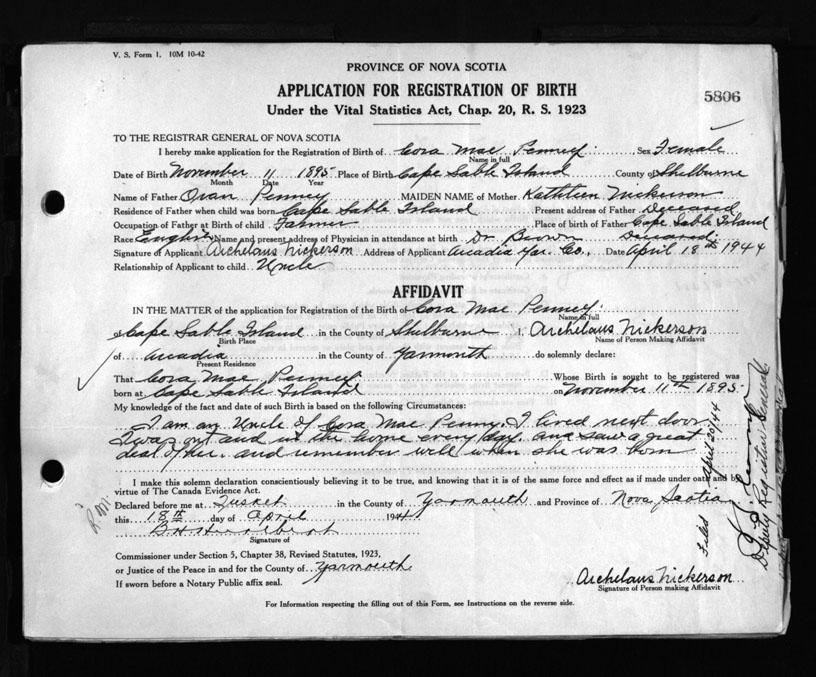 V. S. Form 1. 10M 10-42
PROVINCE OF NOVA SCOTIA
APPLICATION FOR REGISTRATION OF BIRTH
5806
Under the Vital Statistics Act, Chap. 20, R. S. 1923
TO THE REGISTRAR GENERAL OF NOVA SCOTIA
I hereby make application for the Registration of Birth of Cora Mae Penney Sex Female
Name in full
Date of Birth November 11 1895 Place of Birth Cape Sable Island County of Shelburne
Month Date Year
Name of Father Oran Penney MAIDEN NAME of Mother Kathleen Nickerson
Residence of Father when child was born Cape Sable Island Present address of Father Deceased
Occupation of Father at Birth of child Farmer Place of birth of Father Cape Sable Island
Race English Name and present address of Physician in attendance at birth Dr Brown Deceased
Signature of Applicant Archelaus Nickerson Address of Applicant Arcadia Yar. Co., Date April 18th 1944
Relationship of Applicant to child Uncle
AFFIDAVIT
IN THE MATTER of the application for Registration of the Birth of Cora Mae Penney
Name in full
of Cape Sable Island in the County of Shelburne I, Archelaus Nickerson
Birth Place Name of Person Making Affidavit
of Arcadia in the County of Yarmouth do solemnly declare:
Present Residence
That Cora Mae Penney Whose Birth is sought to be registered was
born at Cape Sable Island on November 11th 1895
My knowledge of the fact and date of such Birth is based on the following Circumstances:
I am an Uncle of Cora Mae Penny. I lived next door
I was out and in the home every day. and saw a great
deal of her. and remember well when she was born
I make this solemn declaration conscientiously believing it to be true, and knowing that it is of the same force and effect as if made under oath and by
virtue of The Canada Evidence Act.
Declared before me at Tusket in the County of Yarmouth and Province of Nova Scotia
this 18th day of April 1944
Signature of
Commissioner under Section 5, Chapter 38, Revised Statutes, 1923,
or Justice of the Peace in and for the County of Yarmouth
If sworn before a Notary Public affix seal.
Archelaus Nickerson
Signature of Person making Affidavit
For Information respecting the filling out of this Form, see Instructions on the reverse side.
R.M.
Filed April 20/44
Deputy Registrar General